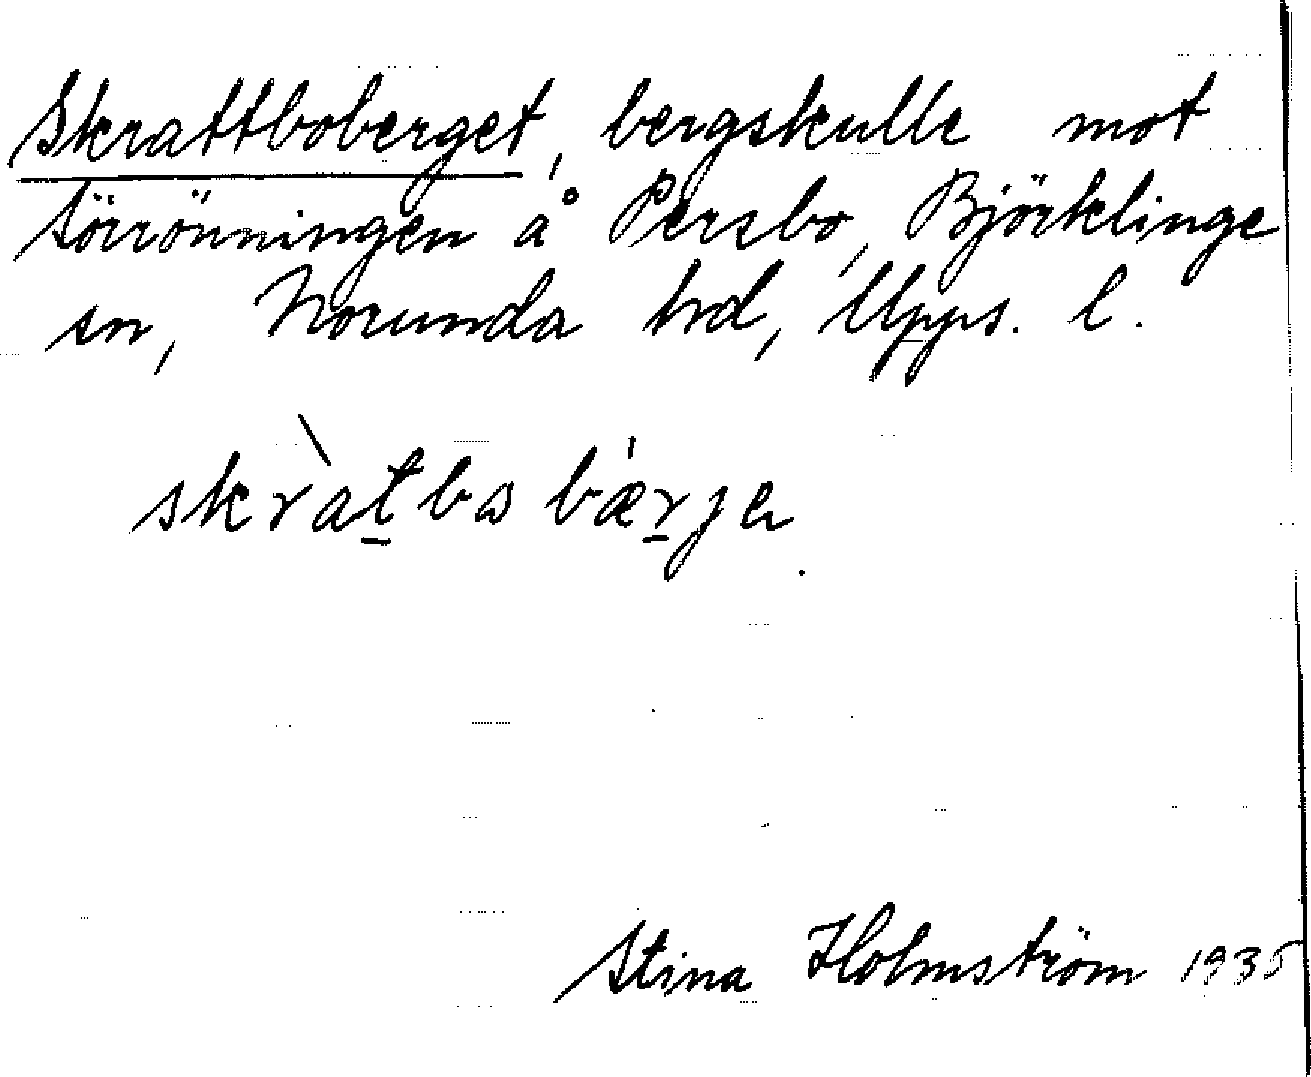 Skrattboberget, bergskulle mot
Sörrönningen å Persbo, Björklinge
sn, Norunda hd, Upps. l.
skràtbɷbærjɐ
Stina Holmström 1935